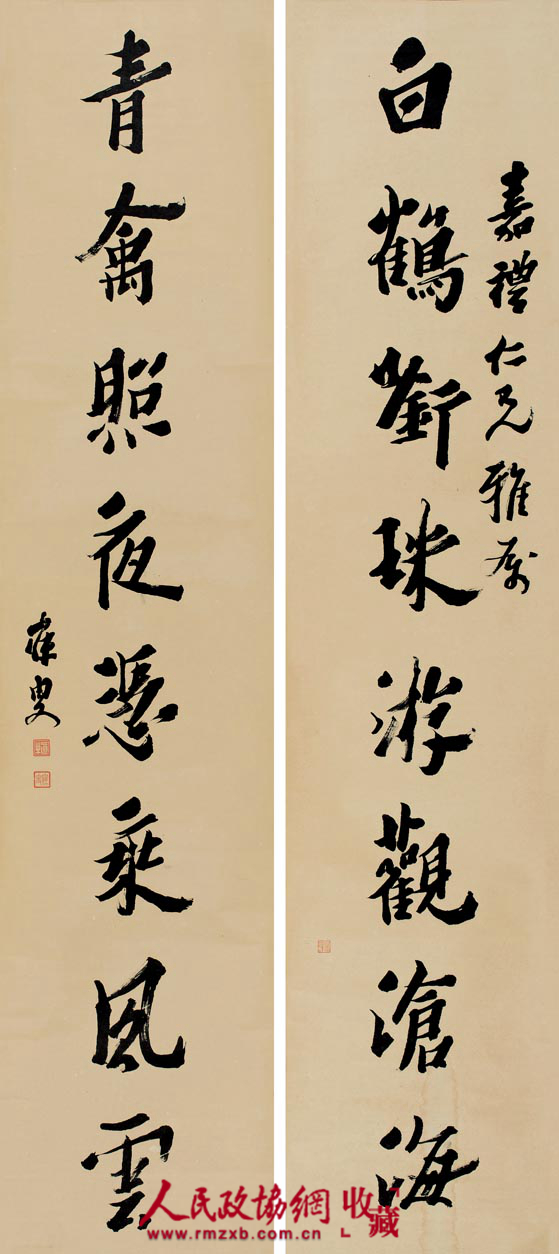 嘉禮仁兄雅屬
白鶴銜珠游觀滄海
青禽照夜憑乘風雲
寐叟
人民政協網 收藏
www.rmzxb.com.cn